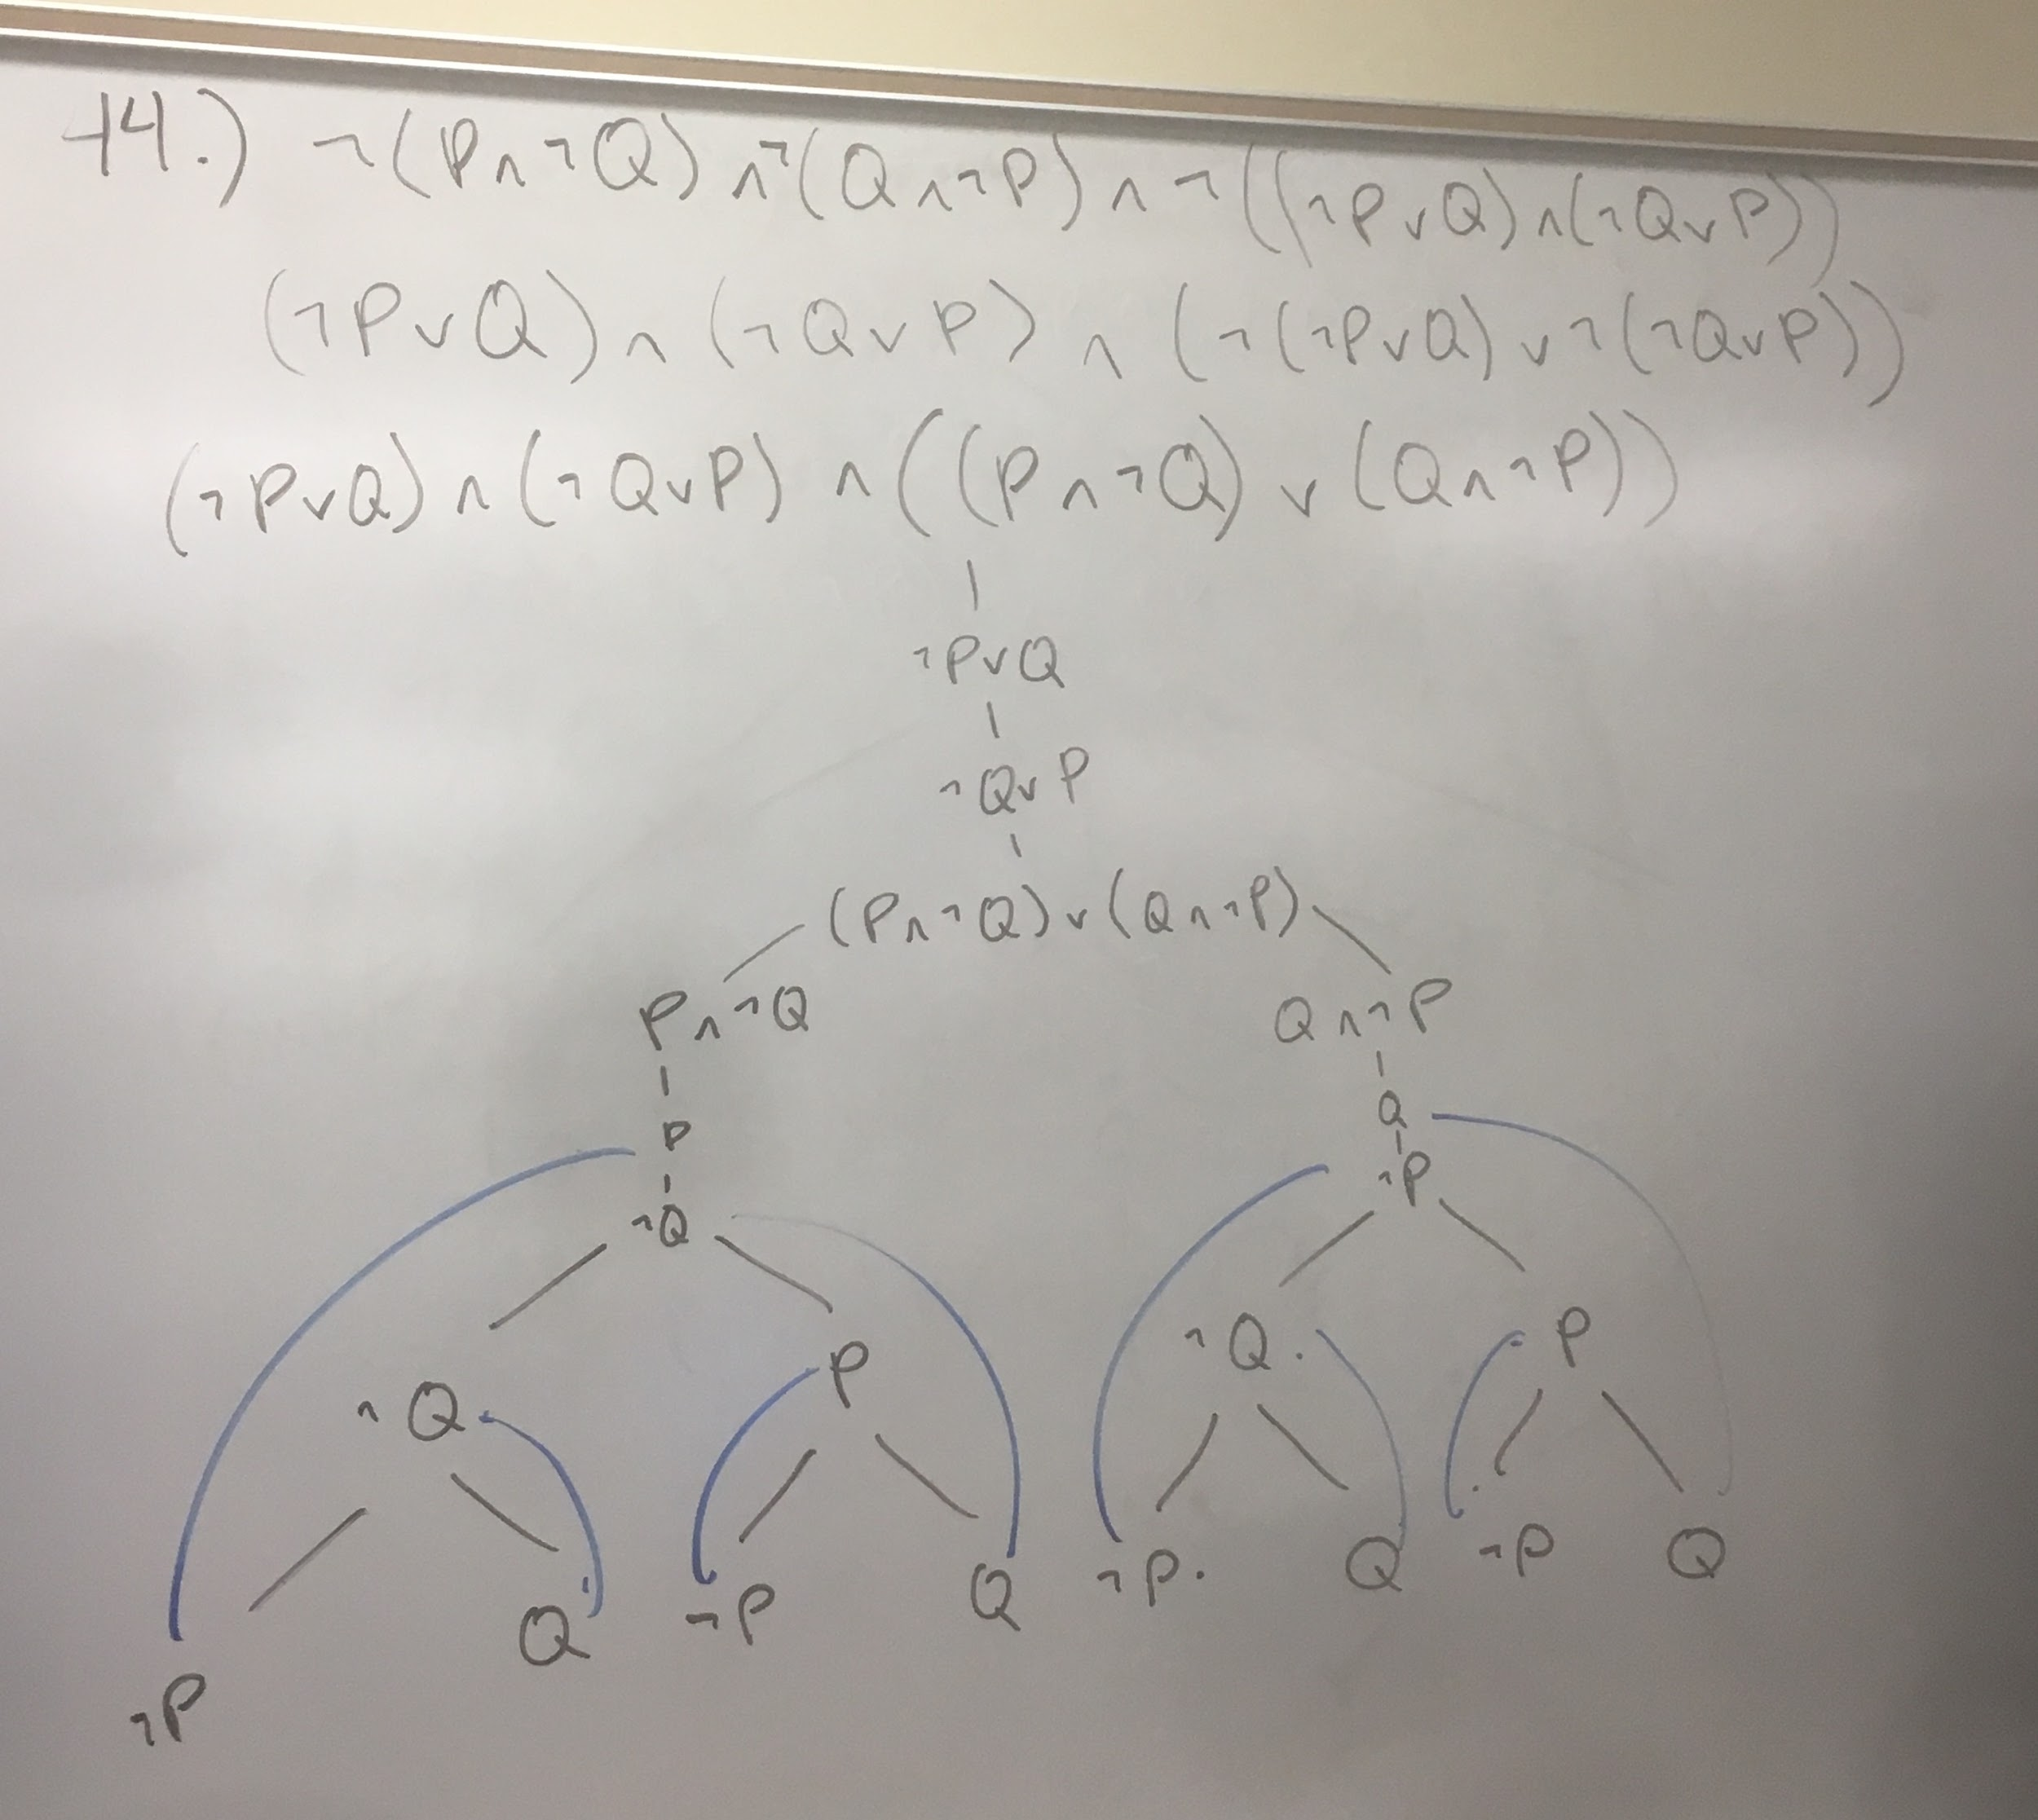 14.) ¬(P∧¬Q)∧¬(Q∧¬P)∧¬((¬P∨Q)∧(¬Q∨P))
(¬P∨Q)∧(¬Q∨P)∧(¬(¬P∨Q)∨¬(¬Q∨P))
(¬P∨Q)∧(¬Q∨P)∧((P∧¬Q)∨(Q∧¬P))
¬P∨Q
¬Q∨P
(P∧¬Q)∨(Q∧¬P)
P∧¬Q Q∧¬P
P Q
¬Q ¬P
¬Q P ¬Q P
¬P Q ¬P Q ¬P Q ¬P Q